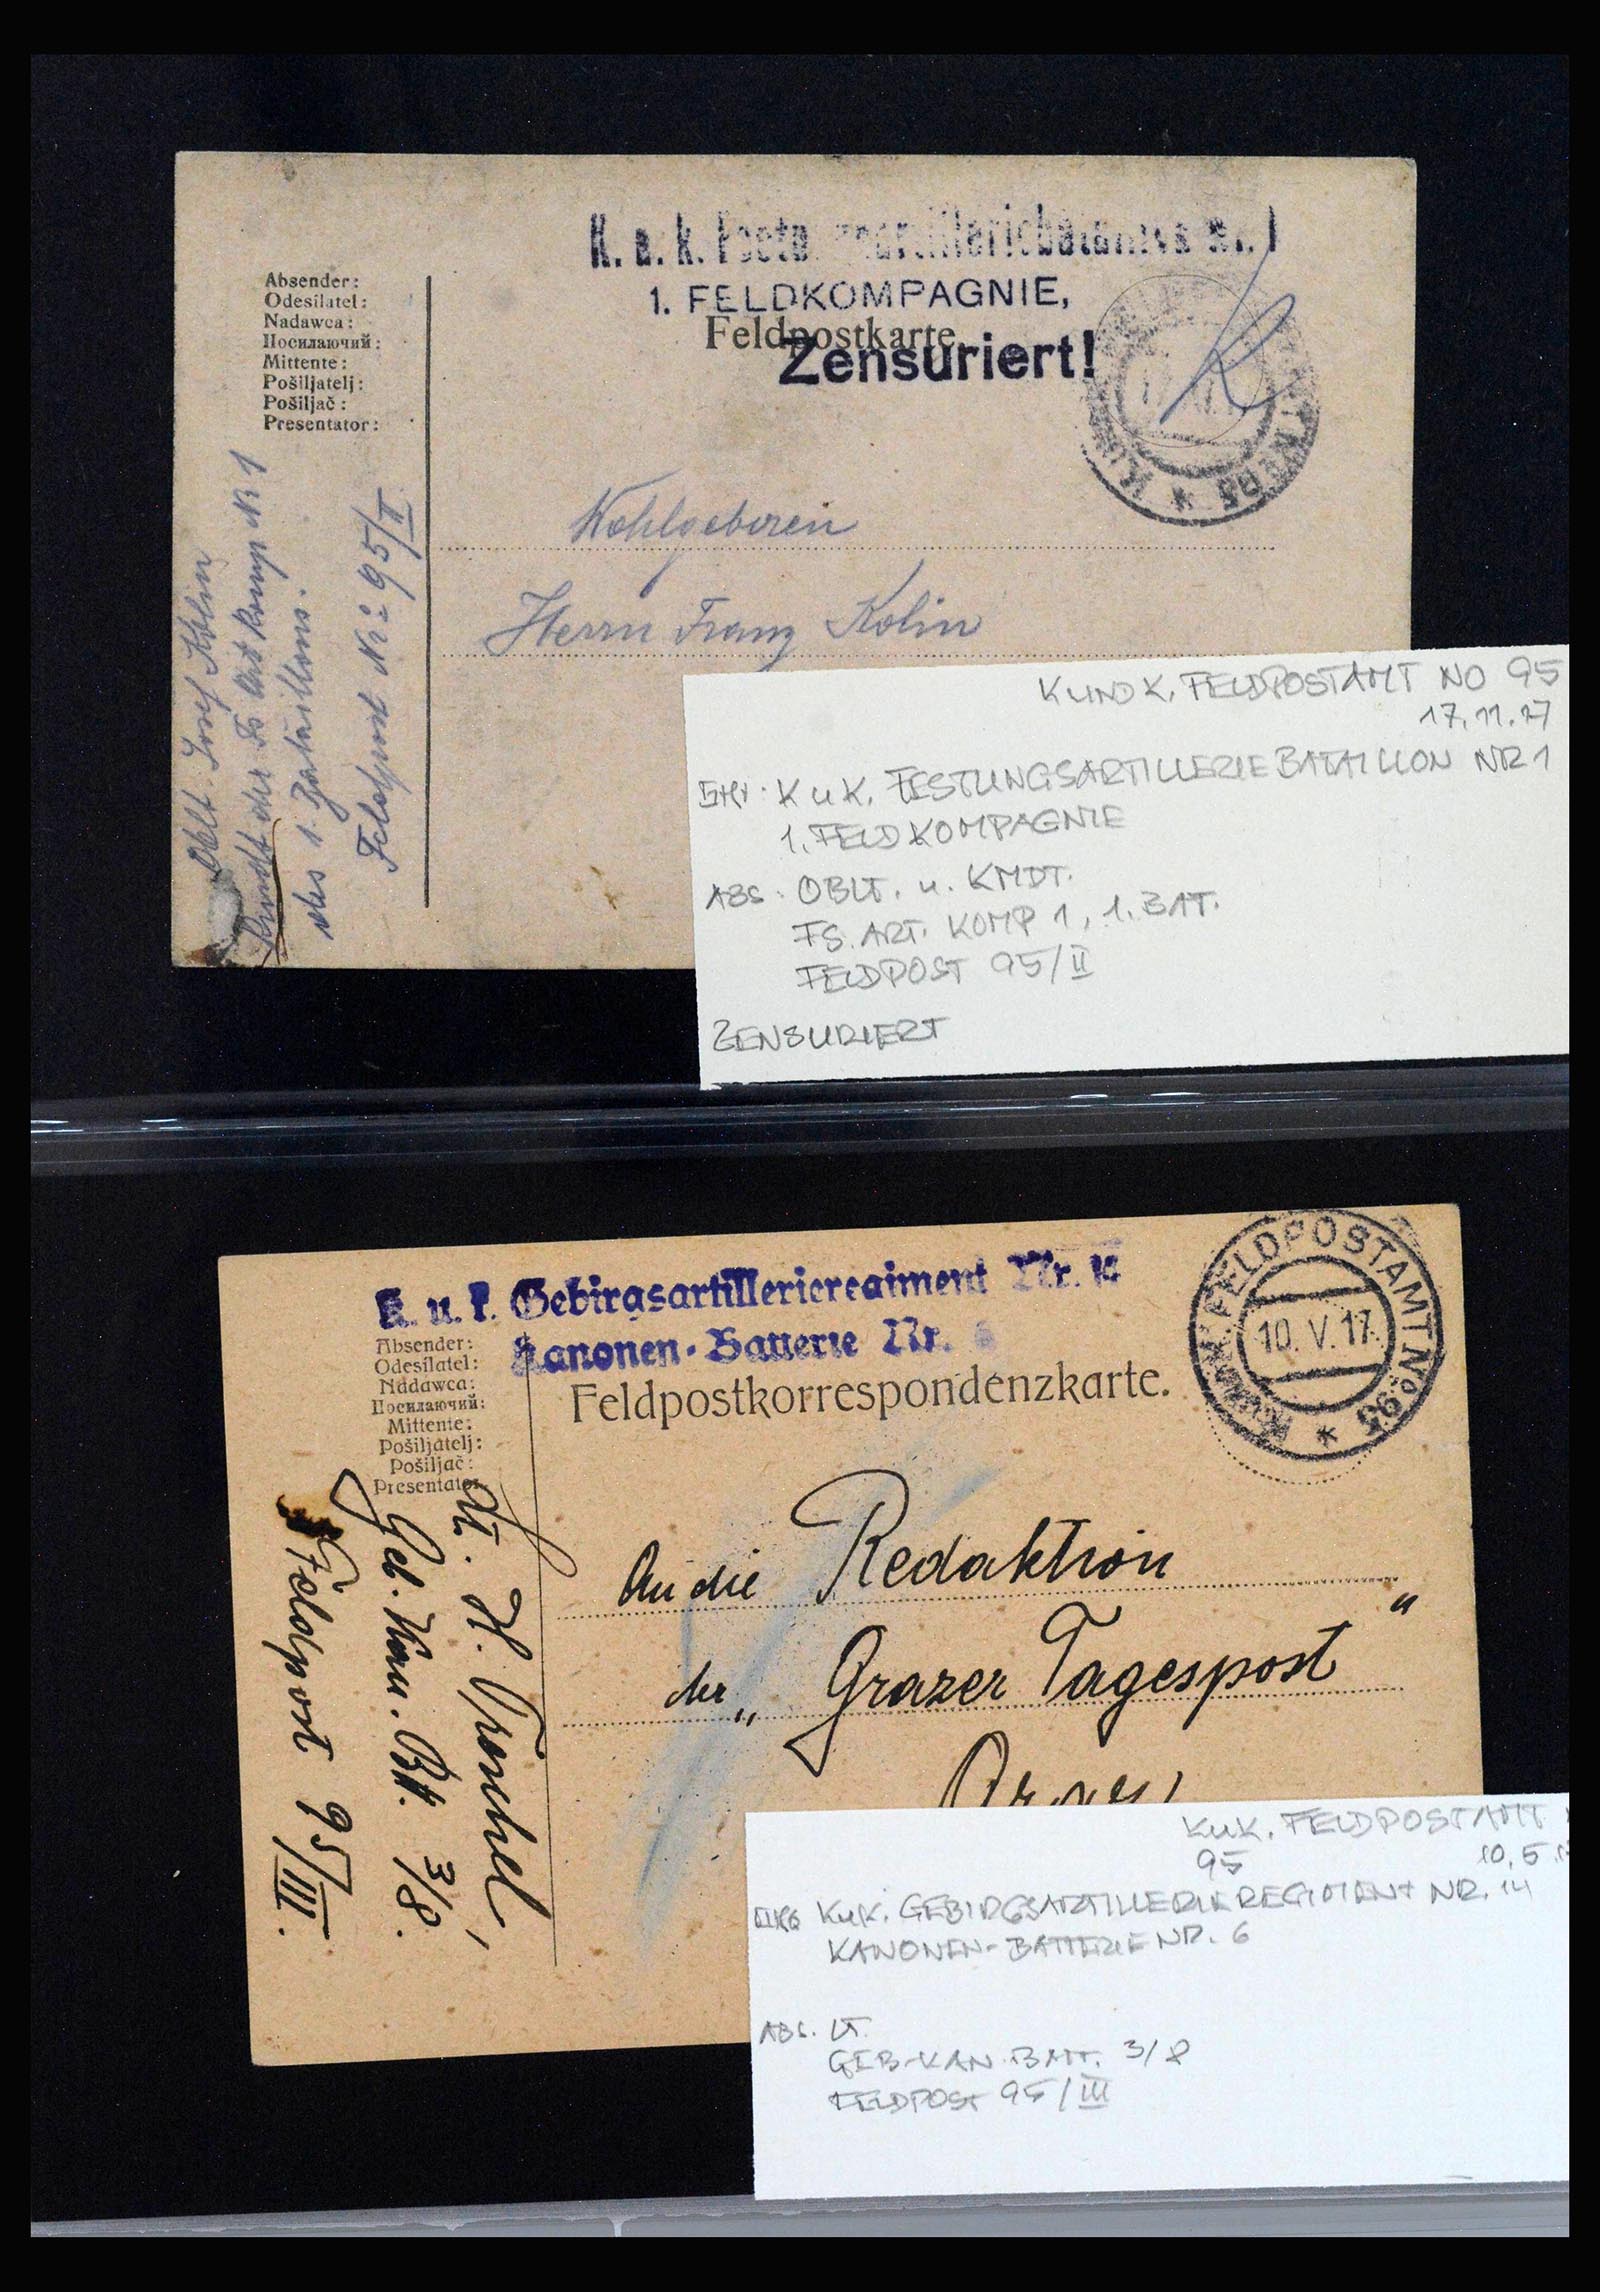 K. u. k. Nr. 1
1. FELDKOMPAGNIE,
Feldpostkarte.
Zensuriert!
Absender:
Odesílatel:
Nadawca:
Посилаючий:
Mittente:
Pošiljatelj:
Pošiljač:
Presentator:
Oblt. Josef Kolin
Komp Nr 1
des 1. Bataillons.
Feldpost Nr: 95/II
Wohlgeboren
Herrn Franz Kolin
K UND K. FELDPOSTAMT NO 95
17.11.17
K u K. FESTUNGSARTILLERIEBATAILLON NR 1
1. FELDKOMPAGNIE
ABS: OBLT. u. KMDT.
FS. ART. KOMP 1, 1. BAT.
FELDPOST 95/II
ZENSURIERT
K. u. k. Gebirgsartillerieregiment Nr. 14
Kanonen-Batterie Nr. 6
K.UND K. FELDPOSTAMT No. 95
10. V. 17
Feldpostkorrespondenzkarte.
Absender:
Odesílatel:
Nadawca:
Посилаючий:
Mittente:
Pošiljatelj:
Pošiljač:
Presentator
Lt. H.
Geb. Kan. Bt. 3/8.
Feldpost 95/III.
An die Redaktion
der „Grazer Tagespost"
Graz
KuK. FELDPOSTAMT
95 10.5.
KuK. GEBIRGSARTILLERIEREGIMENT NR. 14
KANONEN-BATTERIE NR. 6
ABS. LT.
GEB-KAN. BATT. 3/8
FELDPOST 95/III